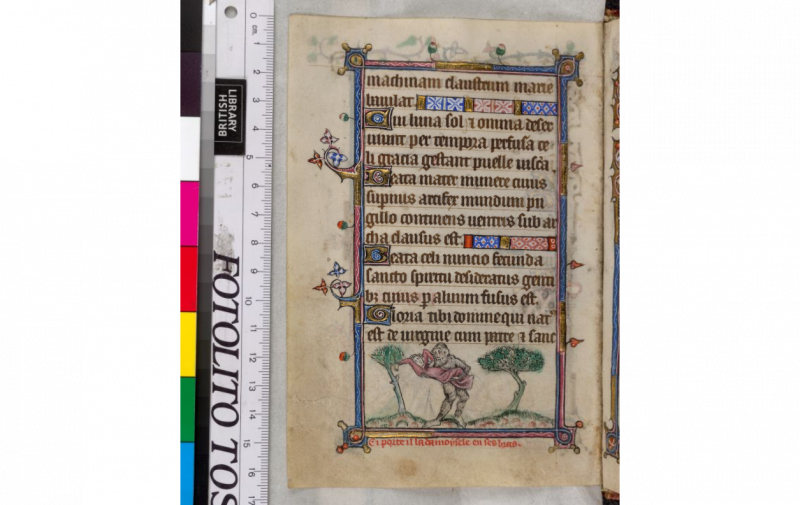 machinam claustrum marie
baiulat
Cui luna sol ⁊ omnia deser
uiunt per tempora perfusa ce
li gracia gestant puelle uisca
Beata mater munere cuius
supnus artifex mundum pu
gillo continens uentris sub ar
cha clausus est.
Beata celi nuncio fecunda
sancto spiritu desideratus genti
bꝫ cuius p aluum fusus est.
Gloria tibi domine qui nat
est de uirgine cum patre ⁊ sanc
Ci porte il la damoysele en ses bras.
BRITISH
LIBRARY
0 cm 1 2 3 4 5 6 7 8 9 10 11 12 13 14 15 16 17
FOTOLITO TOS